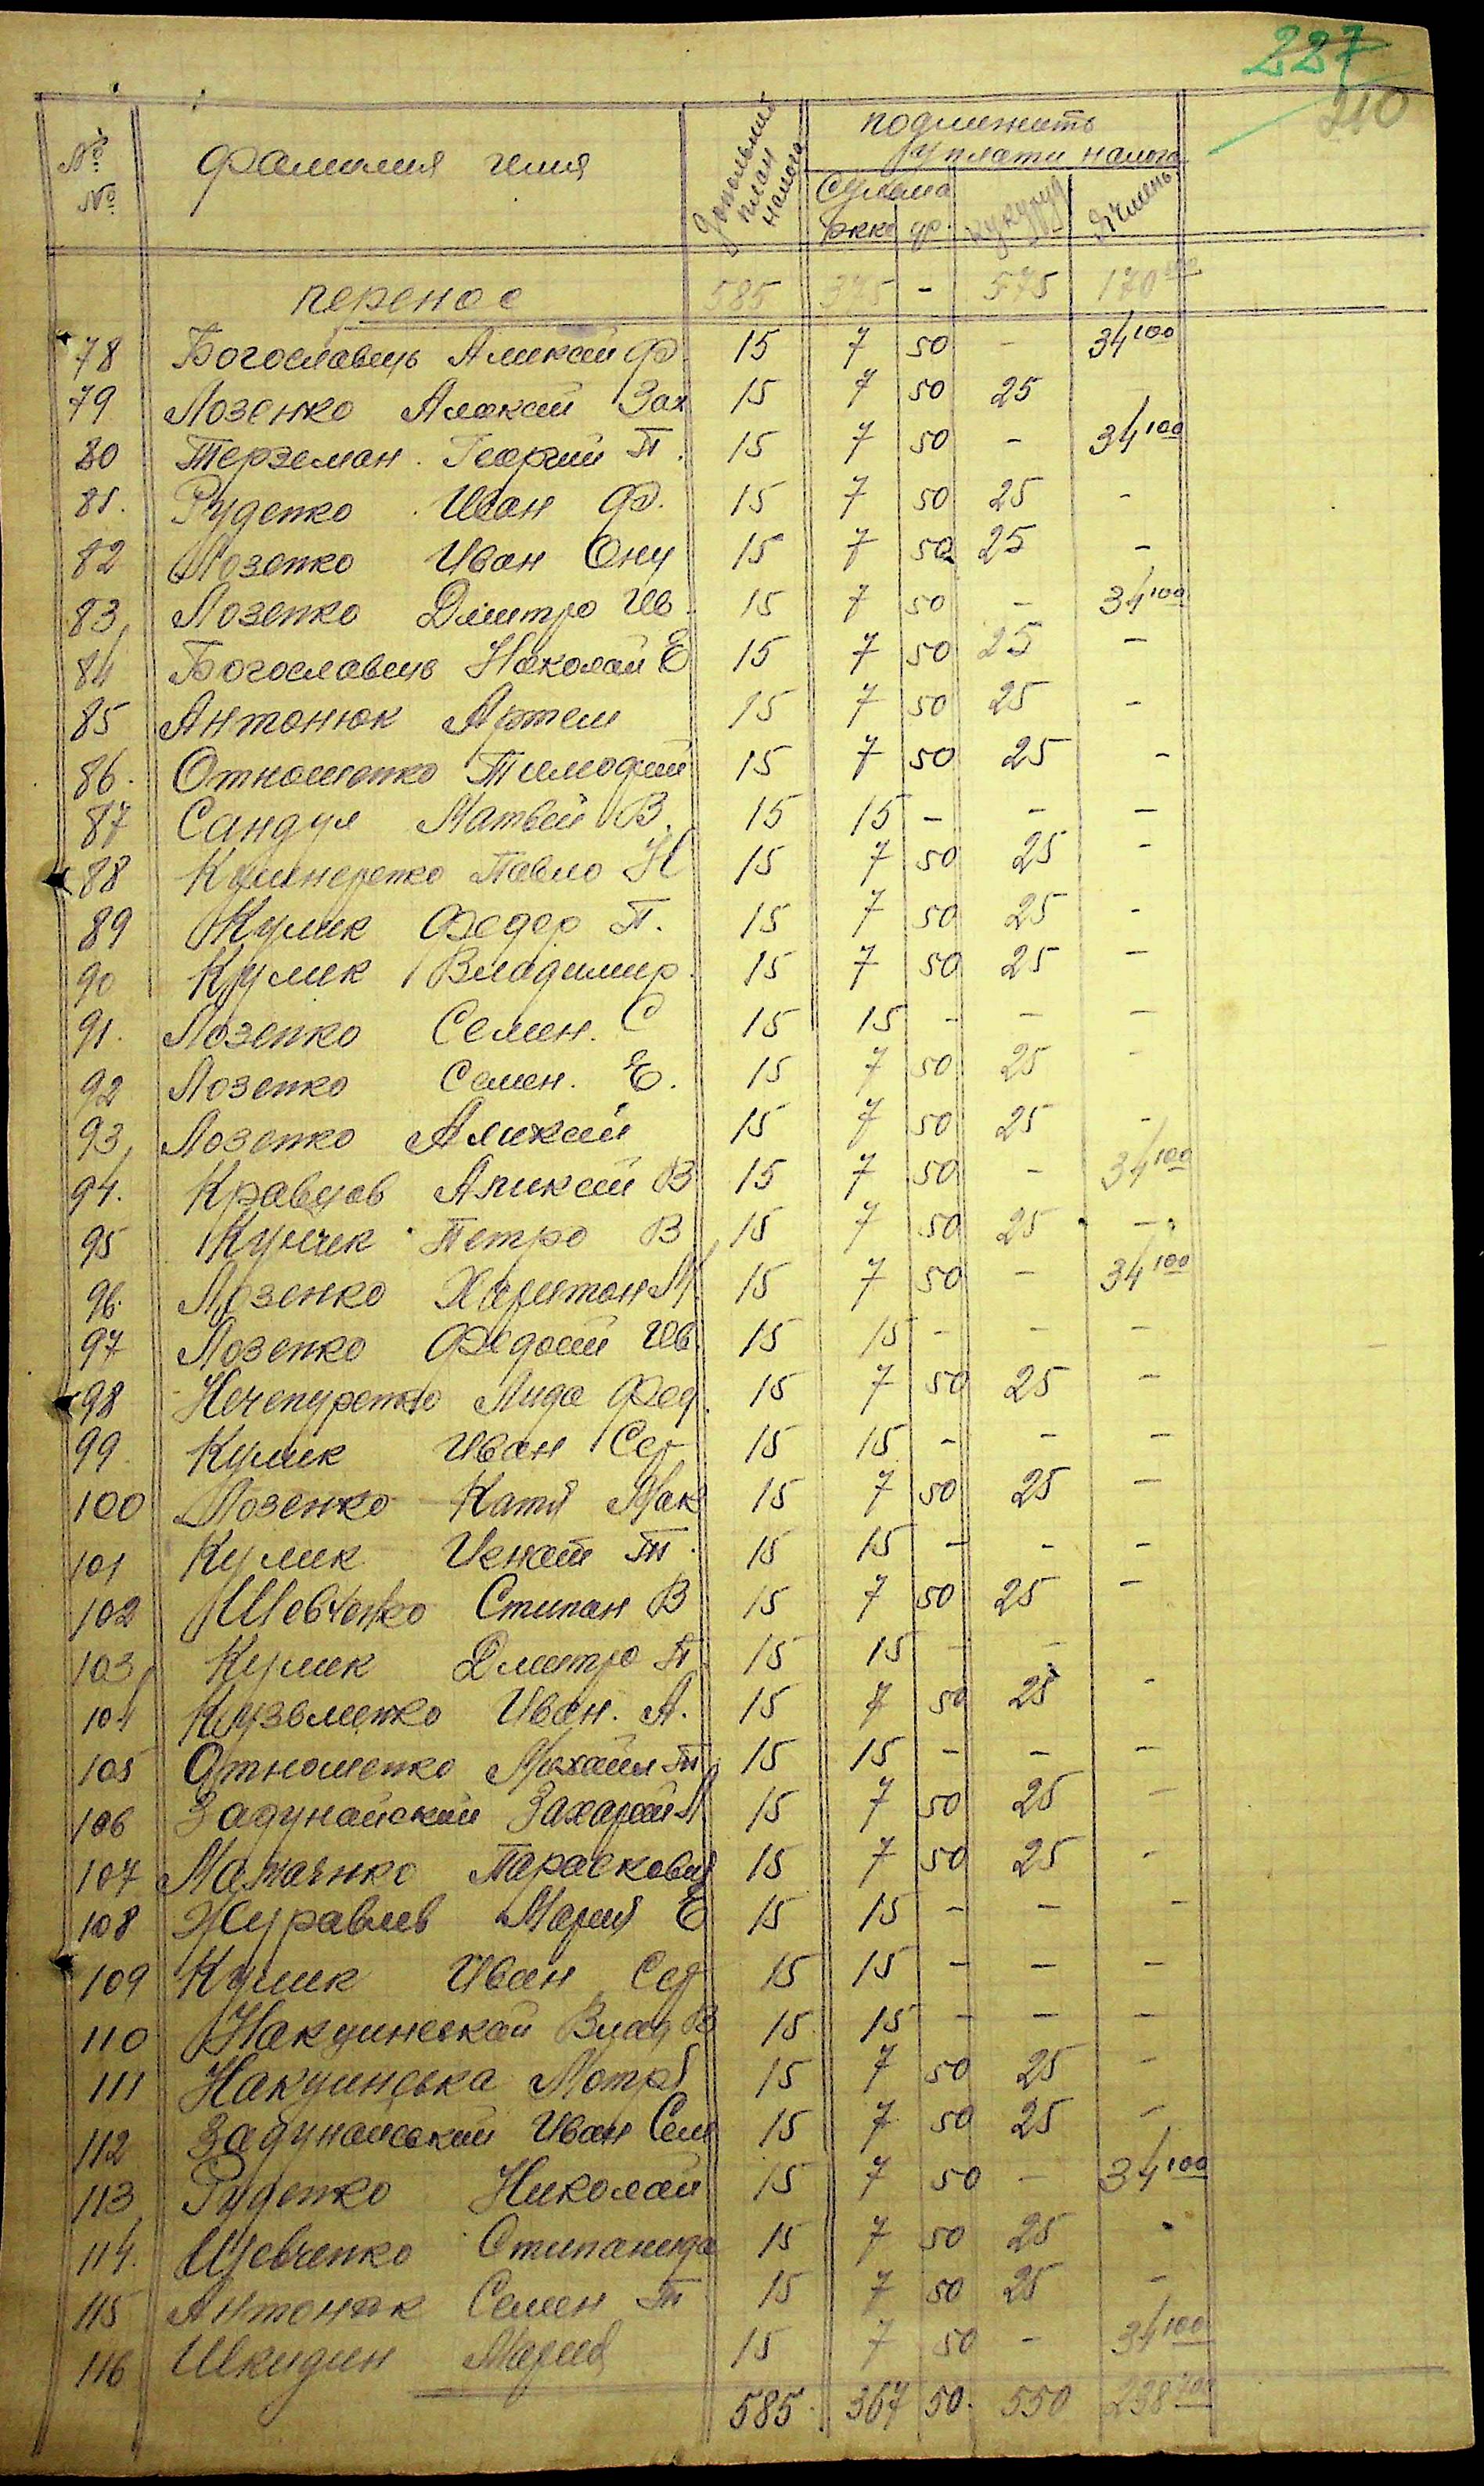 227
210
№ №
фамилия имя
Дополнит план налога
подлежить уплати налога
Сумма
ркк
ур
кукуруд
Ячмень
перенос 585 375 - 575 170
78 Богославець Аликсий Ф. 15 7 50 - 34 100
79 Лозенко Алексей Зах 15 7 50 25
80 Терземан Георгий П. 15 7 50 - 34 100
81. Руденко Иван Ф. 15 7 50 25 -
82 Лозенко Иван Ону 15 7 50 25 -
83 Лозенко Дмитро Ив. 15 7 50 - 34 100
84 Богославець Николай Е 15 7 50 25 -
85 Антонюк Артем 15 7 50 25 -
86. Отношенко Тимофий 15 7 50 25 -
87 Сандул Матвей В. 15 15 - - -
88 Кушнеренко Павло Н 15 7 50 25 -
89 Кулик Федор П. 15 7 50 25 -
90 Кулик Владимир. 15 7 50 25 -
91. Лозенко Семен. С 15 15 - - -
92 Лозенко Семен. Е. 15 7 50 25 -
93 Лозенко Аликсий 15 7 50 25 -
94. Кравцов Аликсий В 15 7 50 - 34 100
95 Кунчек Петро В 15 7 50 25 -
96. Лозенко Харитон М. 15 7 50 - 34 100
97 Лозенко Федосий Ив. 15 15 - - -
98 Нечепуренко Лида Фед. 15 7 50 25 -
99. Кулик Иван Сер 15 15 - - -
100 Лозенко Катя Мак 15 7 50 25 -
101 Кулик Игнат Т. 15 15 - - -
102 Шевченко Стипан В 15 7 50 25 -
103 Кулик Дмитро П 15 15 - -
104 Кузьменко Иван. А. 15 7 50 25 -
105 Отношенко Михаил Т. 15 15 - - -
106 Задунайский Захарий М 15 7 50 25 -
107 Парасковия 15 7 50 25 -
108 Журавлев Мария Е 15 15 - - -
109 Кулик Иван Сер 15 15 - - -
110 Влад В 15 15 - - -
111 Мотря 15 7 50 25 -
112 Задунайський Иван Сем 15 7 50 25 -
113 Руденко Николай 15 7 50 - 34 100
114. Шевченко Стипанида 15 7 50 25
115 Антонюк Семен Т 15 7 50 25 -
116 Шкидин Мария 15 7 50 - 34 100
585. 367 50. 550 238 700